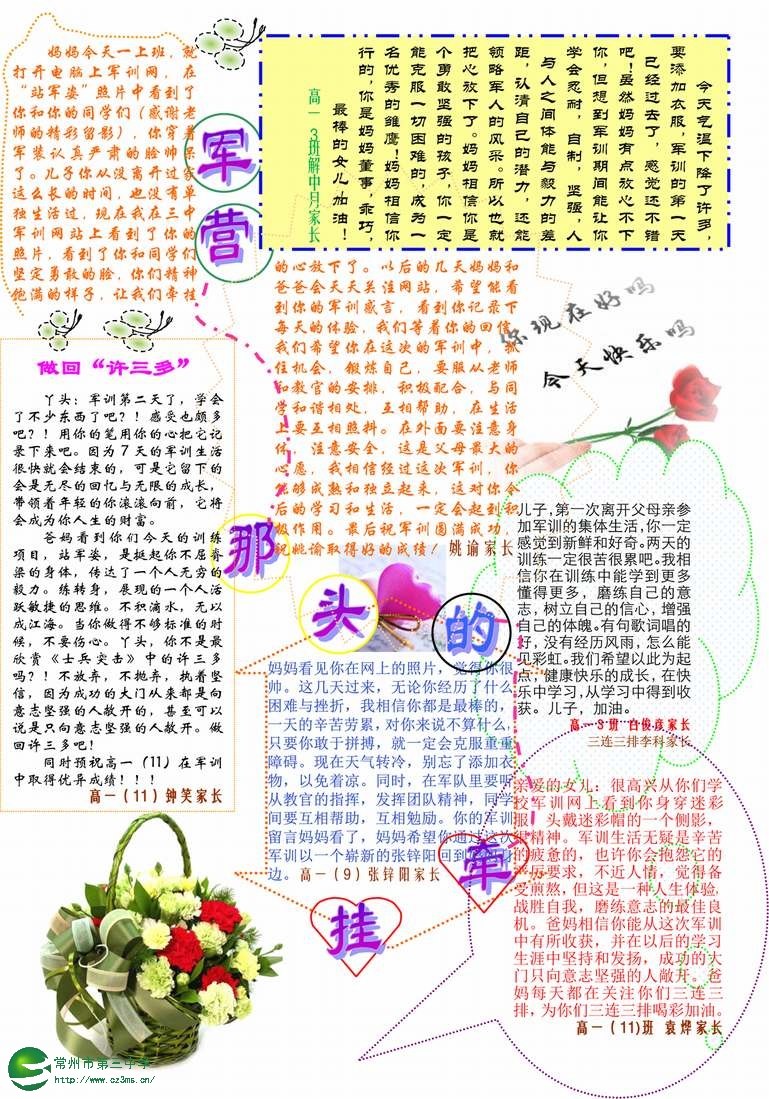 妈妈今天一上班，就
打开电脑上军训网，在
“站军姿”照片中看到了
你和你的同学们（感谢老
师的精彩留影），你穿着
军装认真严肃的脸帅呆
了。儿子你从没离开过家
这么长的时间，也没有单
独生活过，现在我在三中
军训网站上看到了你的
照片，看到了你和同学们
坚定勇敢的脸，你们精神
饱满的样子，让我们牵挂
的心放下了。以后的几天妈妈和
爸爸会天天关注网站，希望能看
到你的军训感言，看到你记录下
每天的体验，我们等着你的回信。
我们希望你在这次的军训中，抓
住机会，锻炼自己，要服从老师
和教官的安排，积极配合，与同
学和谐相处，互相帮助，在生活
上要互相照料。在外面要注意身
体，注意安全，这是父母最大的
心愿，我相信经过这次军训，你
能够成熟和独立起来，这对你今
后的学习和生活，一定会起到积
极作用。最后祝军训圆满成功，
祝姚谕取得好的成绩！姚谕家长
今天气温下降了许多，
要添加衣服，军训的第一天
已经过去了，感觉还不错
吧！虽然妈妈有点放心不下
你，但想到军训期间能让你
学会忍耐，自制，坚强，人
与人之间体能与毅力的差
距，认清自己的潜力，还能
领略军人的风采。所以也就
把心放下了。妈妈相信你是
个勇敢坚强的孩子，你一定
能克服一切困难的，成为一
名优秀的雏鹰！妈妈相信你
行的，你是妈妈董事，乖巧，
最棒的女儿加油！
高一 3班解中月家长
军
营
那
头
的
牵
挂
你现在好吗
今天快乐吗
做回“许三多”
丫头：军训第二天了，学会
了不少东西了吧？！感受也颇多
吧？！用你的笔用你的心把它记
录下来吧。因为7天的军训生活
很快就会结束的，可是它留下的
会是无尽的回忆与无限的成长，
带领着年轻的你滚滚向前，它将
会成为你人生的财富。
爸妈看到你们今天的训练
项目，站军姿，是挺起你不屈脊
梁的身体，传达了一个人无穷的
毅力。练转身，展现的一个人活
跃敏捷的思维。不积滴水，无以
成江海。当你做得不够标准的时
候，不要伤心。丫头，你不是最
欣赏《士兵突击》中的许三多
吗？！不放弃，不抛弃，执着坚
信，因为成功的大门从来都是向
意志坚强的人敞开的，甚至可以
说是只向意志坚强的人敞开。做
回许三多吧！
同时预祝高一（11）在军训
中取得优异成绩！！！
高一（11）钟笑家长
儿子，第一次离开父母亲参
加军训的集体生活，你一定
感觉到新鲜和好奇。两天的
训练一定很苦很累吧。我相
信你在训练中能学到更多
懂得更多，磨练自己的意
志，树立自己的信心，增强
自己的体魄。有句歌词唱的
好，没有经历风雨，怎么能
见彩虹。我们希望以此为起
点，健康快乐的成长，在快
乐中学习，从学习中得到收
获。儿子，加油。
高一 3班 白俊彦家长
三连三排李科家长
妈妈看见你在网上的照片，觉得你很
帅。这几天过来，无论你经历了什么
困难与挫折，我相信你都是最棒的，
一天的辛苦劳累，对你来说不算什么，
只要你敢于拼搏，就一定会克服重重
障碍。现在天气转冷，别忘了添加衣
物，以免着凉。同时，在军队里要听
从教官的指挥，发挥团队精神，同学
间要互相帮助，互相勉励。你的军训
留言妈妈看了，妈妈希望你通过这次
军训以一个崭新的张锌阳回到我们身
边。高一（9）张锌阳家长
亲爱的女儿：很高兴从你们学
校军训网上看到你身穿迷彩
服，头戴迷彩帽的一个侧影，
很精神。军训生活无疑是辛苦
的疲惫的，也许你会抱怨它的
严厉要求，不近人情，觉得备
受煎熬，但这是一种人生体验，
战胜自我，磨练意志的最佳良
机。爸妈相信你能从这次军训
中有所收获，并在以后的学习
生涯中坚持和发扬，成功的大
门只向意志坚强的人敞开。爸
妈每天都在关注你们三连三
排，为你们三连三排喝彩加油。
高一（11）班 袁烨家长
常州市第三中学
http://www.cz3ms.cn/